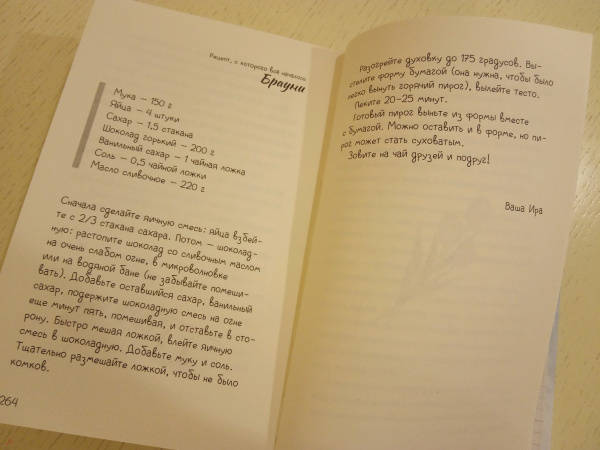 Рецепт, с которого всё началось
Брауни
Мука – 150 г
Яйца – 4 штуки
Сахар – 1,5 стакана
Шоколад горький – 200 г
Ванильный сахар – 1 чайная ложка
Соль – 0,5 чайной ложки
Масло сливочное – 220 г
Сначала сделайте яичную смесь: яйца взбей-
те с 2/3 стакана сахара. Потом – шоколад-
ную: растопите шоколад со сливочным маслом
на очень слабом огне, в микроволновке
или на водяной бане (не забывайте помеши-
вать). Добавьте оставшийся сахар, ванильный
сахар, подержите шоколадную смесь на огне
еще минут пять, помешивая, и отставьте в сто-
рону. Быстро мешая ложкой, влейте яичную
смесь в шоколадную. Добавьте муку и соль.
Тщательно размешайте ложкой, чтобы не было
комков.
264
Разогрейте духовку до 175 градусов. Вы-
стелите форму бумагой (она нужна, чтобы было
легко вынуть горячий пирог), вылейте тесто.
Пеките 20–25 минут.
Готовый пирог выньте из формы вместе
с бумагой. Можно оставить и в форме, но пи-
рог может стать суховатым.
Зовите на чай друзей и подруг!
Ваша Ира